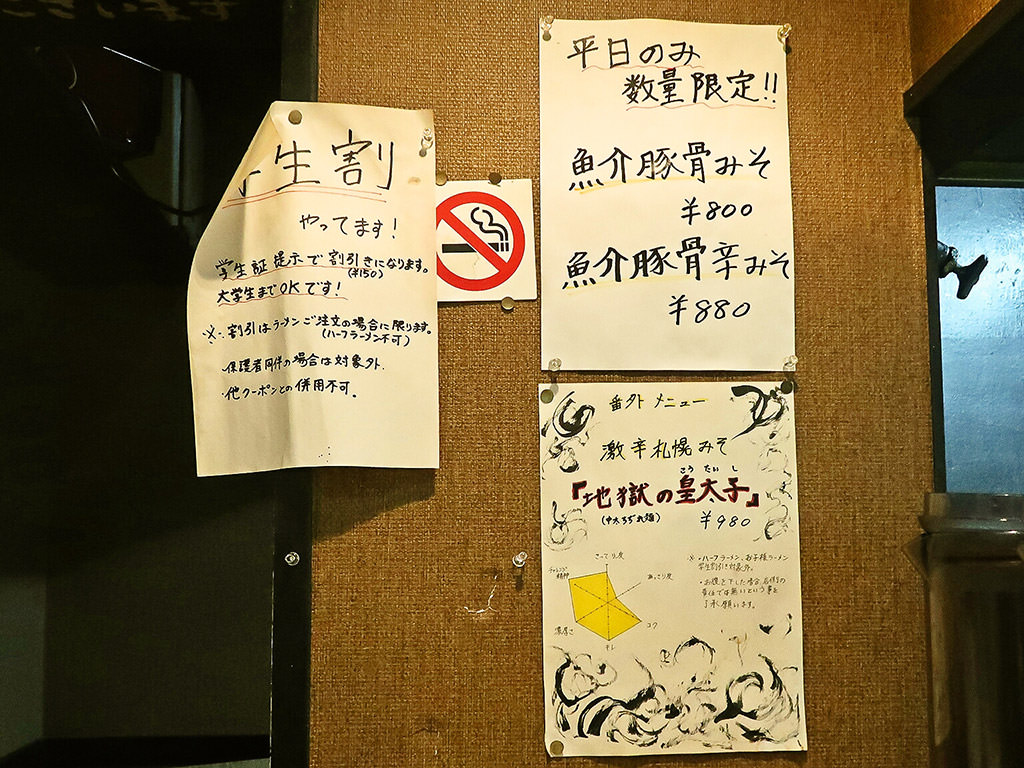 生割
やってます!
学生証提示で割引きになります。
(¥150)
大学生までOKです!
※・割引はラーメンご注文の場合に限ります。
(ハーフラーメン不可)
・保護者同伴の場合は対象外.
・他クーポンとの併用不可。
平日のみ
数量限定!!
魚介豚骨みそ
¥800
魚介豚骨辛みそ
¥880
番外メニュー
激辛札幌みそ
こうたいし
『地獄の皇太子』
(中太ちぢれ麺)
¥980
こってり度
チャレンジ
精神
あっさり度
濃厚さ
コク
キレ
※・ハーフラーメン、お子様ラーメン
学生割引き対象外。
・お腹を下した場合、当店の
責任では無いという事を
了承願います。